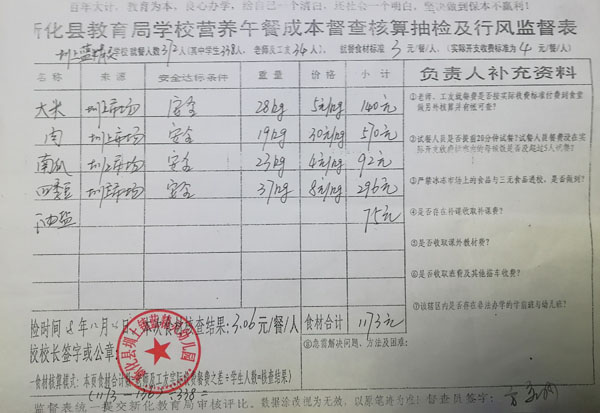 百年大计,教育为本,良心办学,给自己一个清白,还社会一个明白,坚决做到保本不赢利!
新化县教育局学校营养午餐成本督查核算抽检及行风监督表
学校就餐人数372人(其中学生338人、老师及工友34人),就餐食材标准3元/餐/人,(实际开支收费标准为4元/餐/人)
名称 来源 安全达标条件 重量 价格 小计 负责人补充资料
大米 圳上市场 安全 28kg 5元/kg 140元
①老师、工友就餐费是否按实际收费标准付费到食堂
做另外核算并有账可查?
肉 圳上市场 安全 19kg 30元/kg 570元
②试餐人员是否提前20分钟试餐?试餐人员餐费没在实
南瓜 圳上市场 安全 23kg 4元/kg 92元
③严禁冰冻市场上的食品与三无食品进校,是否做到?
四季豆 圳上市场 安全 37kg 8元/kg 296元
油盐 75元
④是否存在补课收取补课费?
⑤是否收取课外教材费?
⑥是否收取班费及其他搭车收费?
⑦该辖区内是否存在非法办学的学前班与幼儿班?
检时间 本次食材检查结果:3.06元/餐/人 食材合计 1173元
校校长签字或公章:
⑧急需解决问题、方法及困难:
督查员签字:
监督表统一提交新化教育局审核评比。数据涂改视为无效,以原笔迹为准!